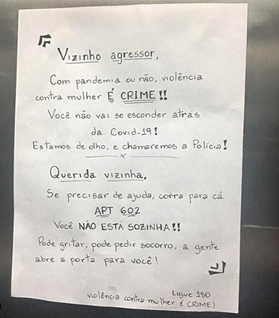 Vizinho agressor,
Com pandemia ou não, violência
contra mulher É CRIME!!
Você não vai se esconder atrás
da Covid-19!
Estamos de olho, e chamaremos a Polícia!
Querida vizinha,
Se precisar de ajuda, corra para cá
APT 602
Você NÃO ESTÁ SOZINHA!!
Pode gritar, pode pedir socorro, a gente
abre a porta para você!
Ligue 180
violência contra mulher é CRIME!